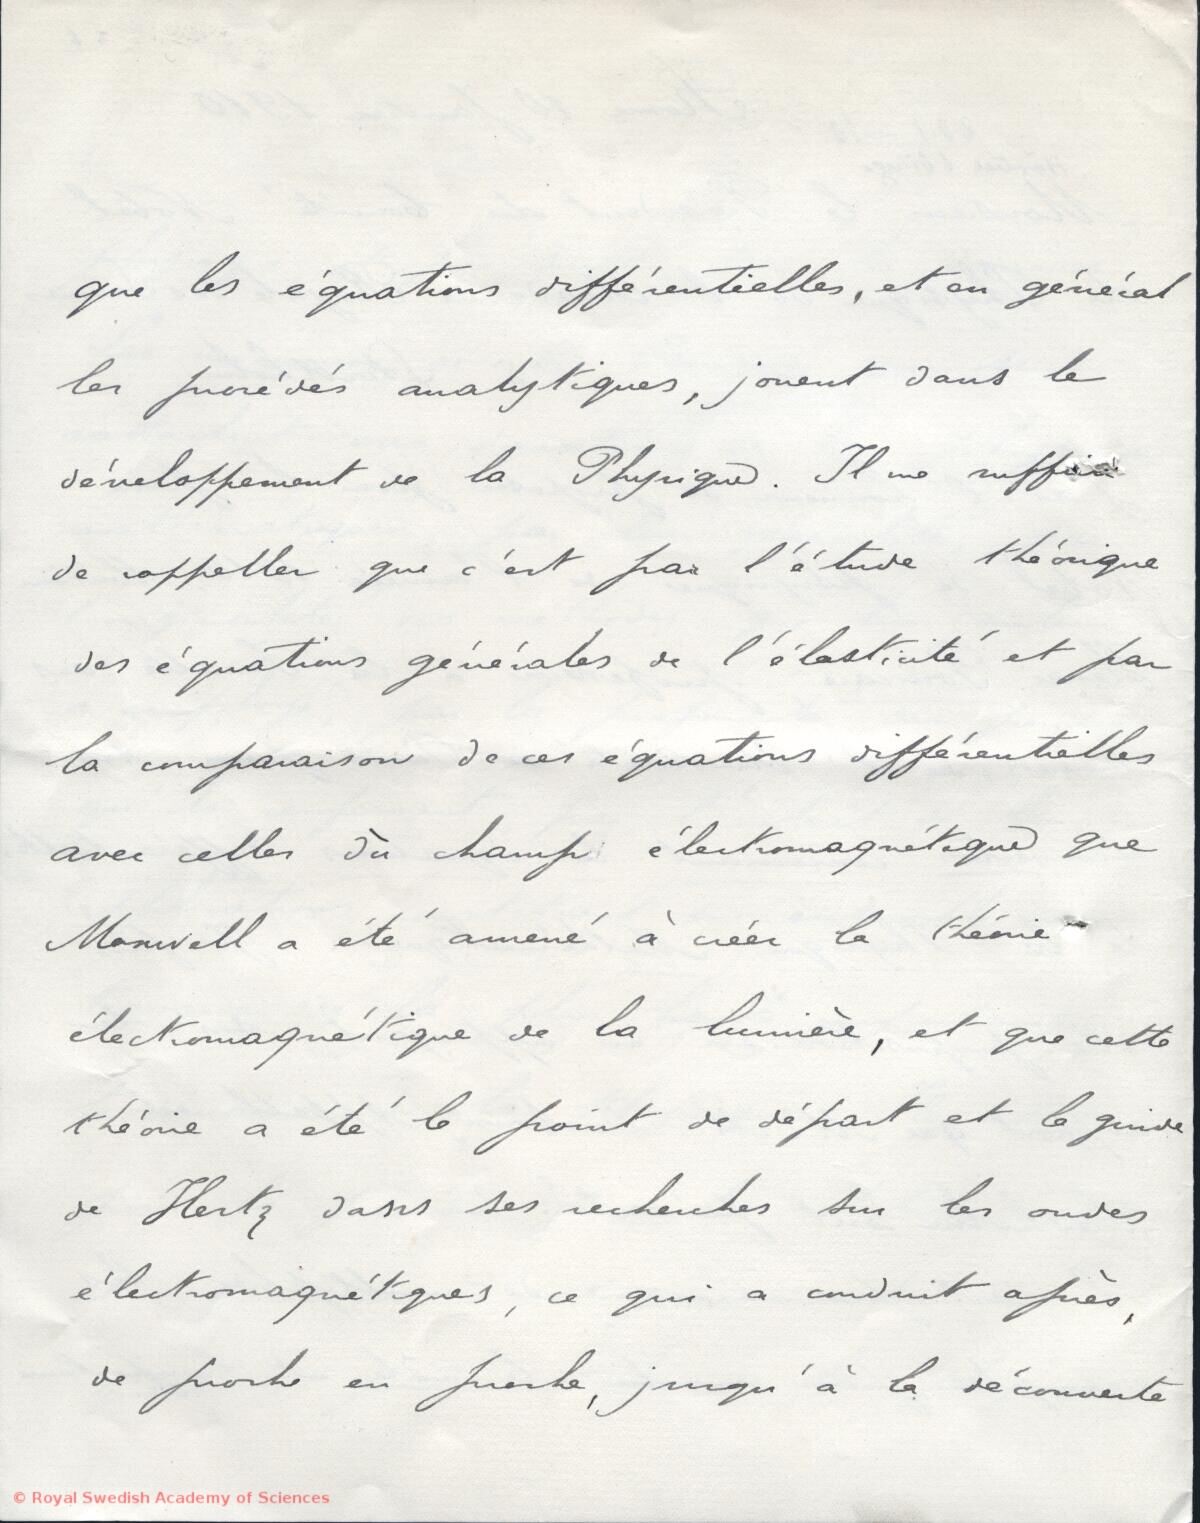 que les équations différentielles, et en général
les procédés analytiques, jouent dans le
développement de la Physique. Il me suffira
de rappeller que c'est par l'étude théorique
des équations générales de l'élasticité et par
la comparaison de ces équations différentielles
avec celles du champ électromagnétique que
Maxwell a été amené à créer la théorie
électromagnétique de la lumière, et que cette
théorie a été le point de départ et le guide
de Hertz dans ses recherches sur les ondes
électromagnétiques, ce qui a conduit après,
de proche en proche, jusqu'à la découverte
© Royal Swedish Academy of Sciences